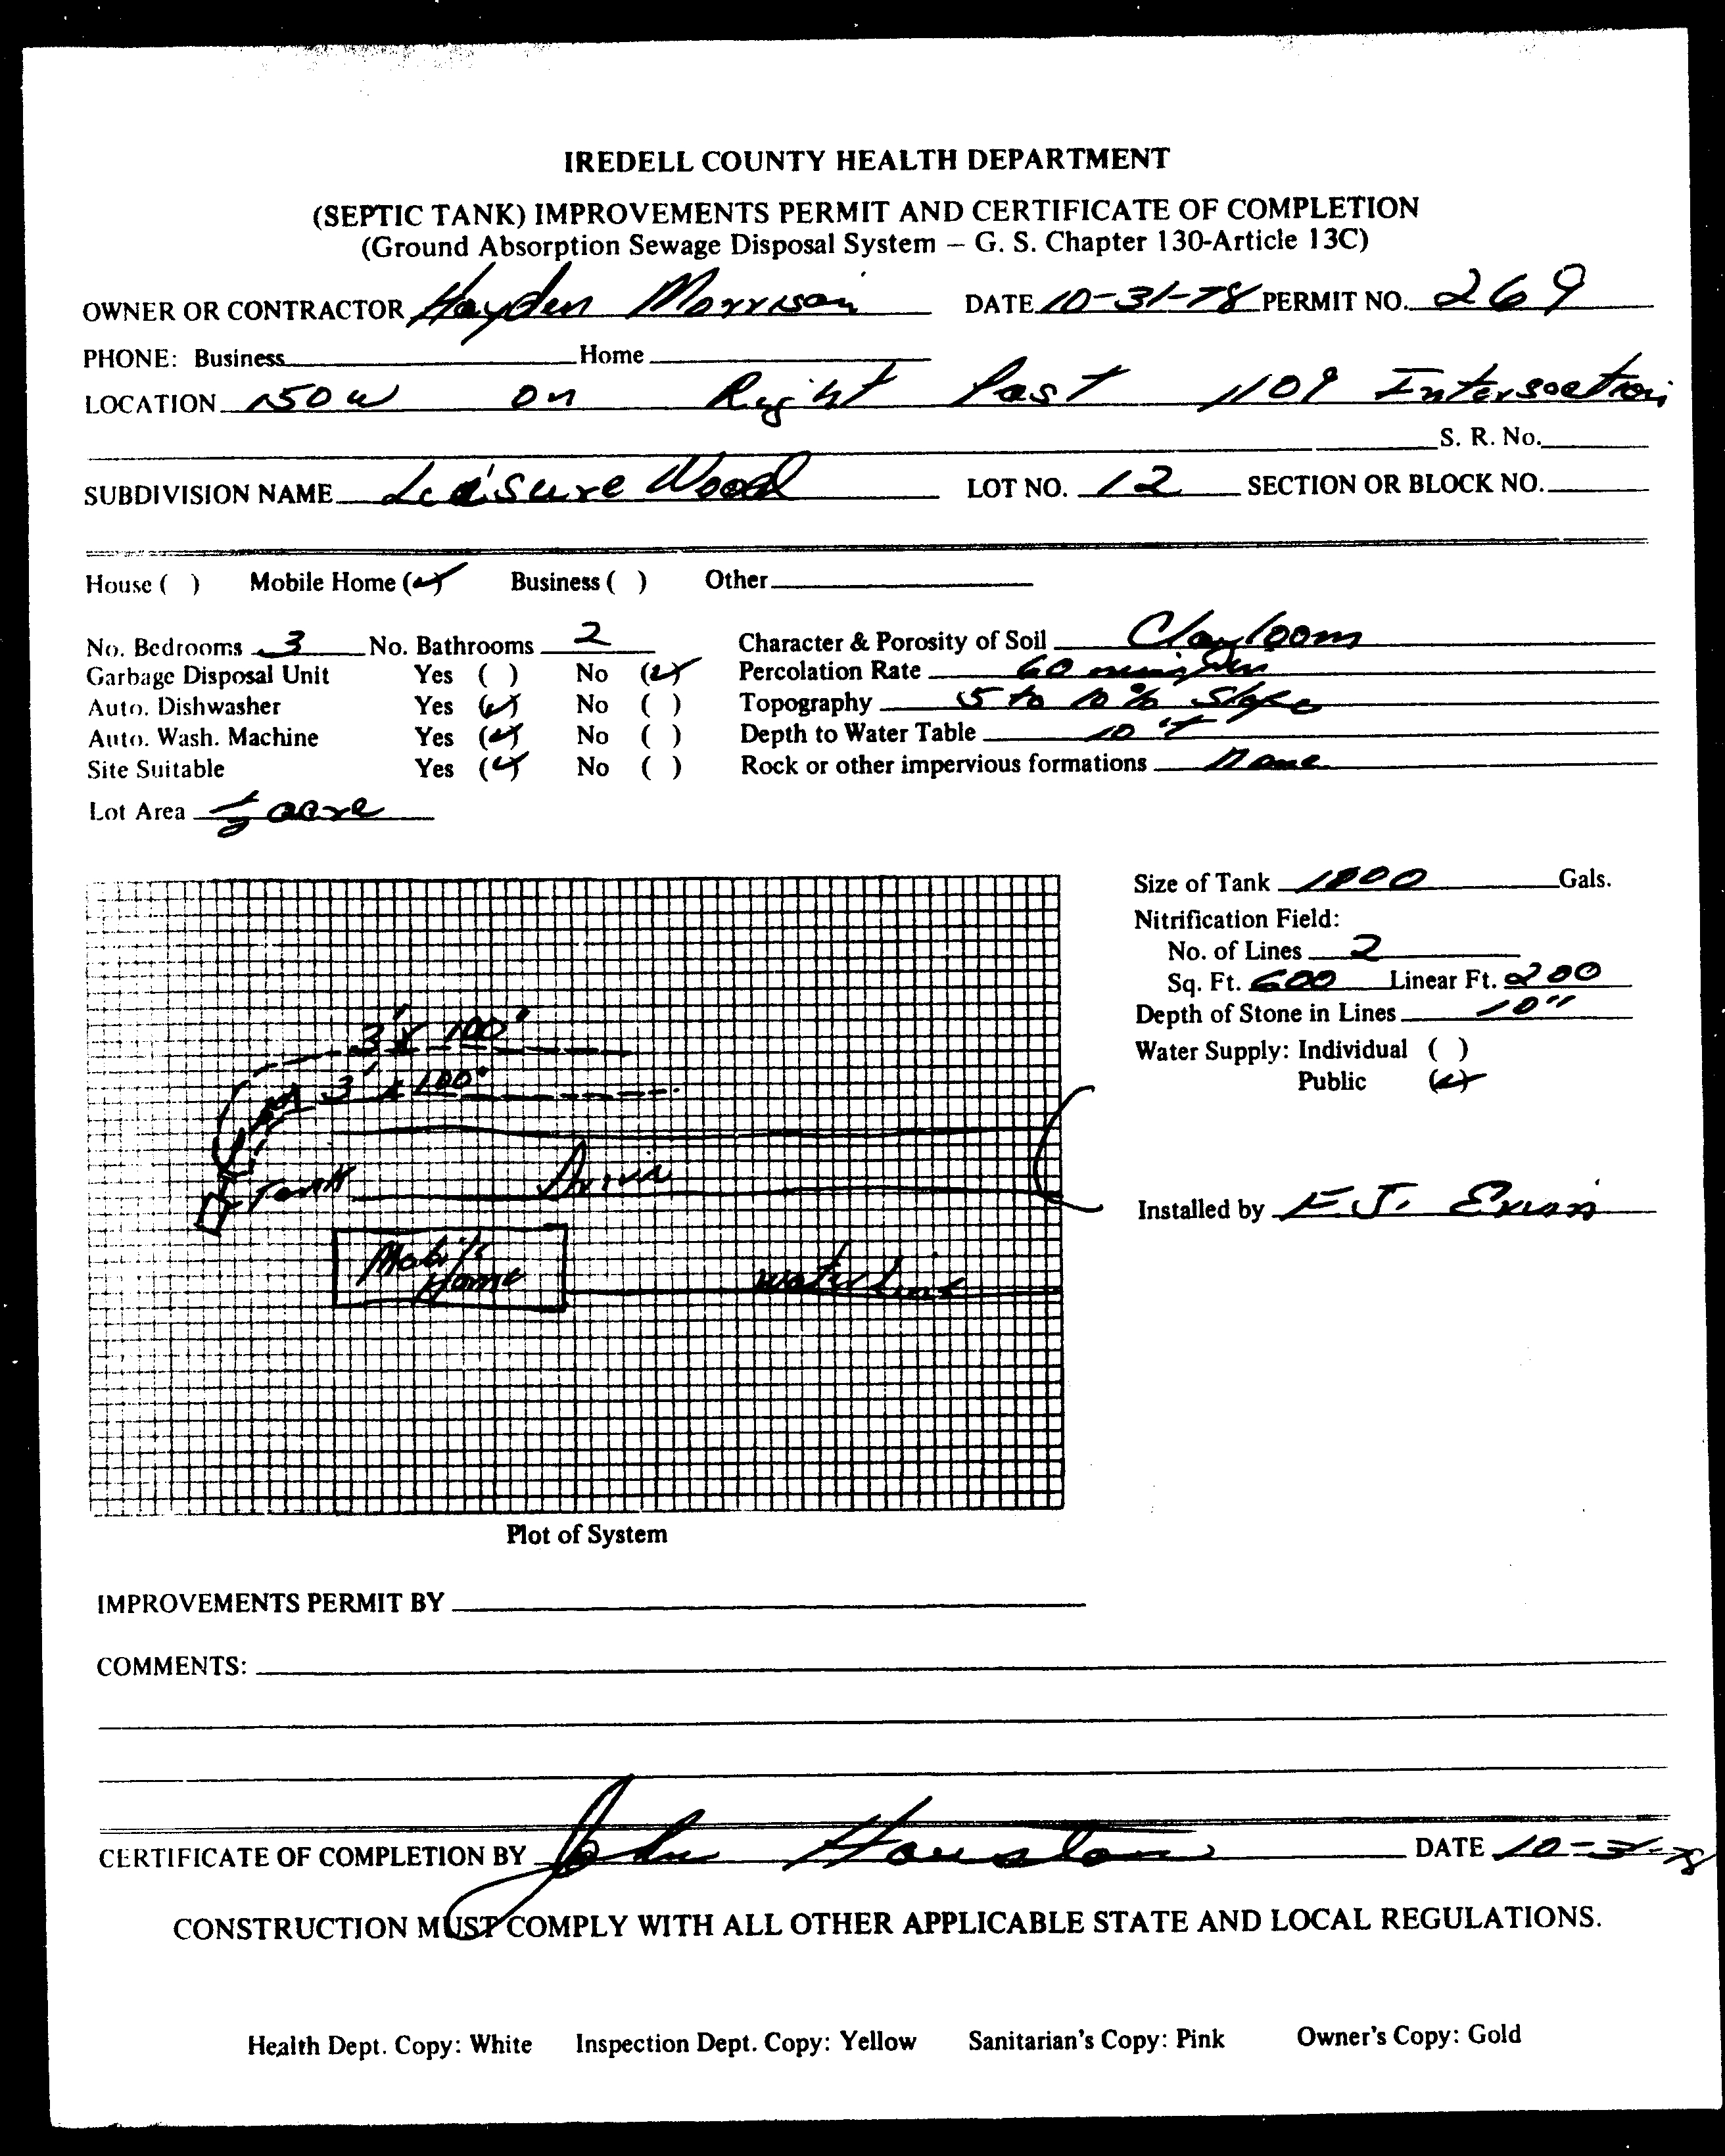 IREDELL COUNTY HEALTH DEPARTMENT
(SEPTIC TANK) IMPROVEMENTS PERMIT AND CERTIFICATE OF COMPLETION
(Ground Absorption Sewage Disposal System – G. S. Chapter 130-Article 13C)
OWNER OR CONTRACTOR Hayden Morrison DATE 10-31-78 PERMIT NO. 269
PHONE: Business Home
LOCATION 150 W on Right Past 1109 Intersection
S. R. No.
SUBDIVISION NAME Leisure Wood LOT NO. 12 SECTION OR BLOCK NO.
House ( ) Mobile Home (✓) Business ( ) Other
No. Bedrooms 3 No. Bathrooms 2 Character & Porosity of Soil Clay loom
Garbage Disposal Unit Yes ( ) No (✓) Percolation Rate 60 min
Auto. Dishwasher Yes (✓) No ( ) Topography 5 to 10% Slope
Auto. Wash. Machine Yes (✓) No ( ) Depth to Water Table 10
Site Suitable Yes (✓) No ( ) Rock or other impervious formations None
Lot Area ½ acre
Size of Tank 1000 Gals.
Nitrification Field:
No. of Lines 2
Sq. Ft. 600 Linear Ft. 200
Depth of Stone in Lines 10"
Water Supply: Individual ( )
Public (✓)
3' x 100'
3' x 100'
Tank Drive
Installed by E.J. Evans
Mobile
Home
water line
Plot of System
IMPROVEMENTS PERMIT BY
COMMENTS:
CERTIFICATE OF COMPLETION BY John Houston DATE 10-31-78
CONSTRUCTION MUST COMPLY WITH ALL OTHER APPLICABLE STATE AND LOCAL REGULATIONS.
Health Dept. Copy: White Inspection Dept. Copy: Yellow Sanitarian's Copy: Pink Owner's Copy: Gold